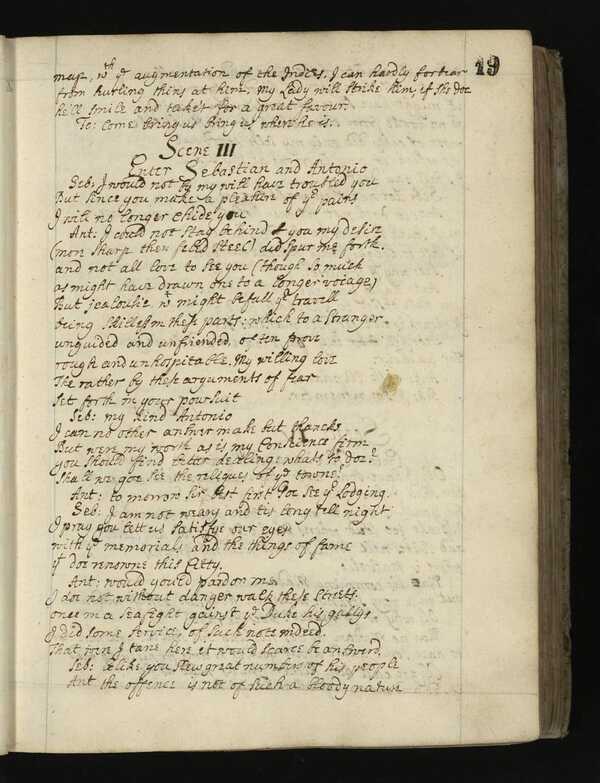 19
map, wth ye augmentation of the Indies, I can hardly forbear
from hurling things at him, my Lady will strike him, if she doe
hell smile and take't for a great favour.
To: Come bring us bring us where he is.
Scene III
Enter Sebastian and Antonio
Seb: I would not by my will have troubled you
But since you make a pleasure of yr pains
I will no longer chide you
Ant: I could not stay behind you my desire
(more sharp then filed steel) did spur me forth.
and not all love to see you (though so much
as might have drawn one to a longer voiage)
But jealousie wt might befall yr travell
being skilless in these parts: which to a stranger.
unguided and unfriended, often prove
rough and unhospitable. My willing love
The rather by these arguments of fear
Set forth in your poursuit
Seb: my kind Antonio
I can no other answer make but thancks
But were my worth as is my Conscience firm
you should find better dealing: whats to doe?
Shall we goe see the reliques of ye towne?
Ant: to morrow Sir, best first goe see yr Lodging.
Seb: I am not weary and tis long tell night
I pray you lett us satisfye our eyes
with ye memorials and the things of fame
yt doe renowne this Citty.
Ant: would you'd pardon me.
I doe not without danger walk these streets.
once in a seafight gainst ye Duke his gallys
I did some service, of such note indeed.
That were I tane here it would scarce be answerd.
Seb: belike you slew great numbers of his people
Ant the offence is not of such a bloody nature